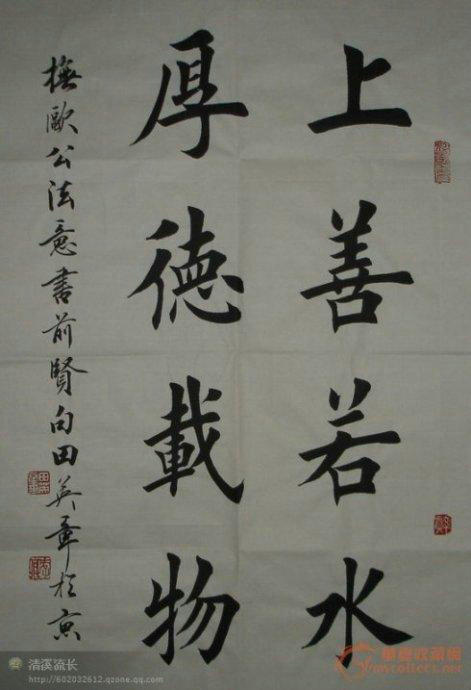 上善若水
厚德載物
橅歐公法意書前賢句田英章於京
清溪流长
http://602032612.qzone.qq.com
華夏收藏網
mycollect.net